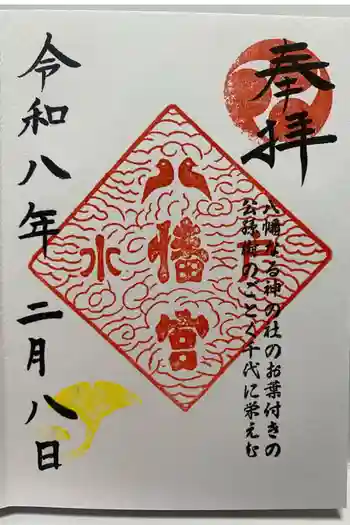 奉拝
八幡なる神の社のお葉付きの
公孫樹のごとく千代に栄えむ
八幡宮
水
令和八年二月八日